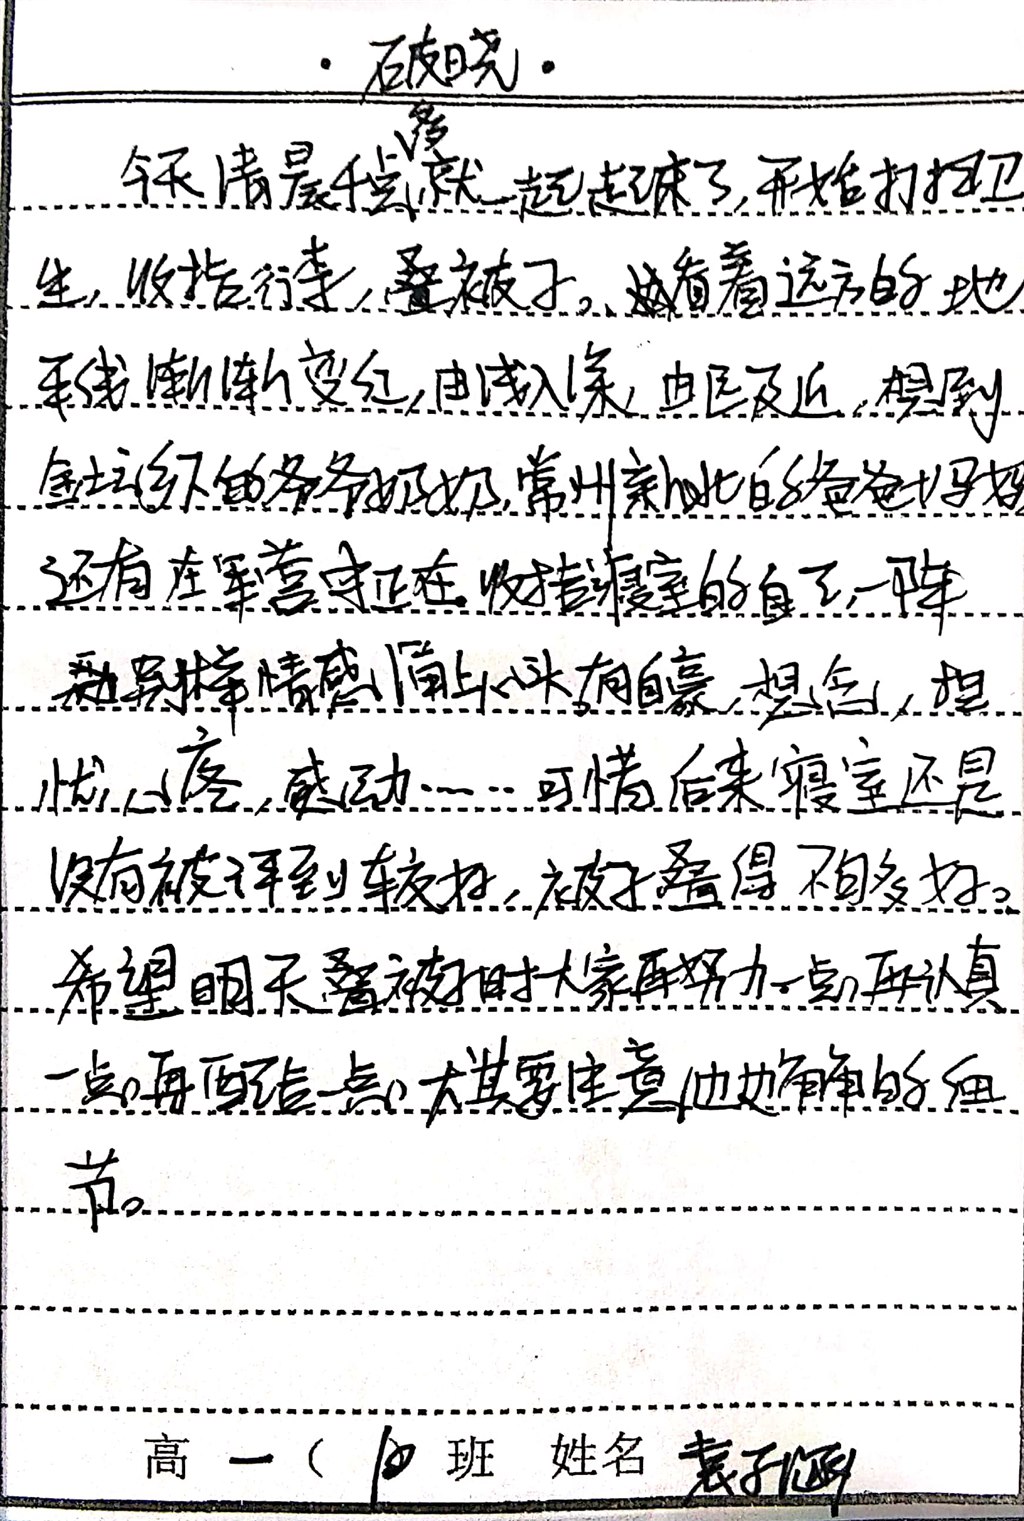 ·破晓·
今天清晨千点多就一起起床了,开始打扫卫
生,收拾行李,叠被子。看着远方的地
平线渐渐变红,由浅入深,由巨及近,想到
金坛乡下的爷爷奶奶,常州新北的爸爸妈妈
还有在军营中正在收拾寝室的自己,一阵
异样情感涌上心头,有自豪,想念,担
忧,心疼,感动……可惜后来寝室还是
没有被评到较好,被子叠得不够好。
希望明天叠被子时大家再努力一点,再认真
一点,再团结一点,尤其要注意的细
节。
高一(10班 姓名 袁子涵